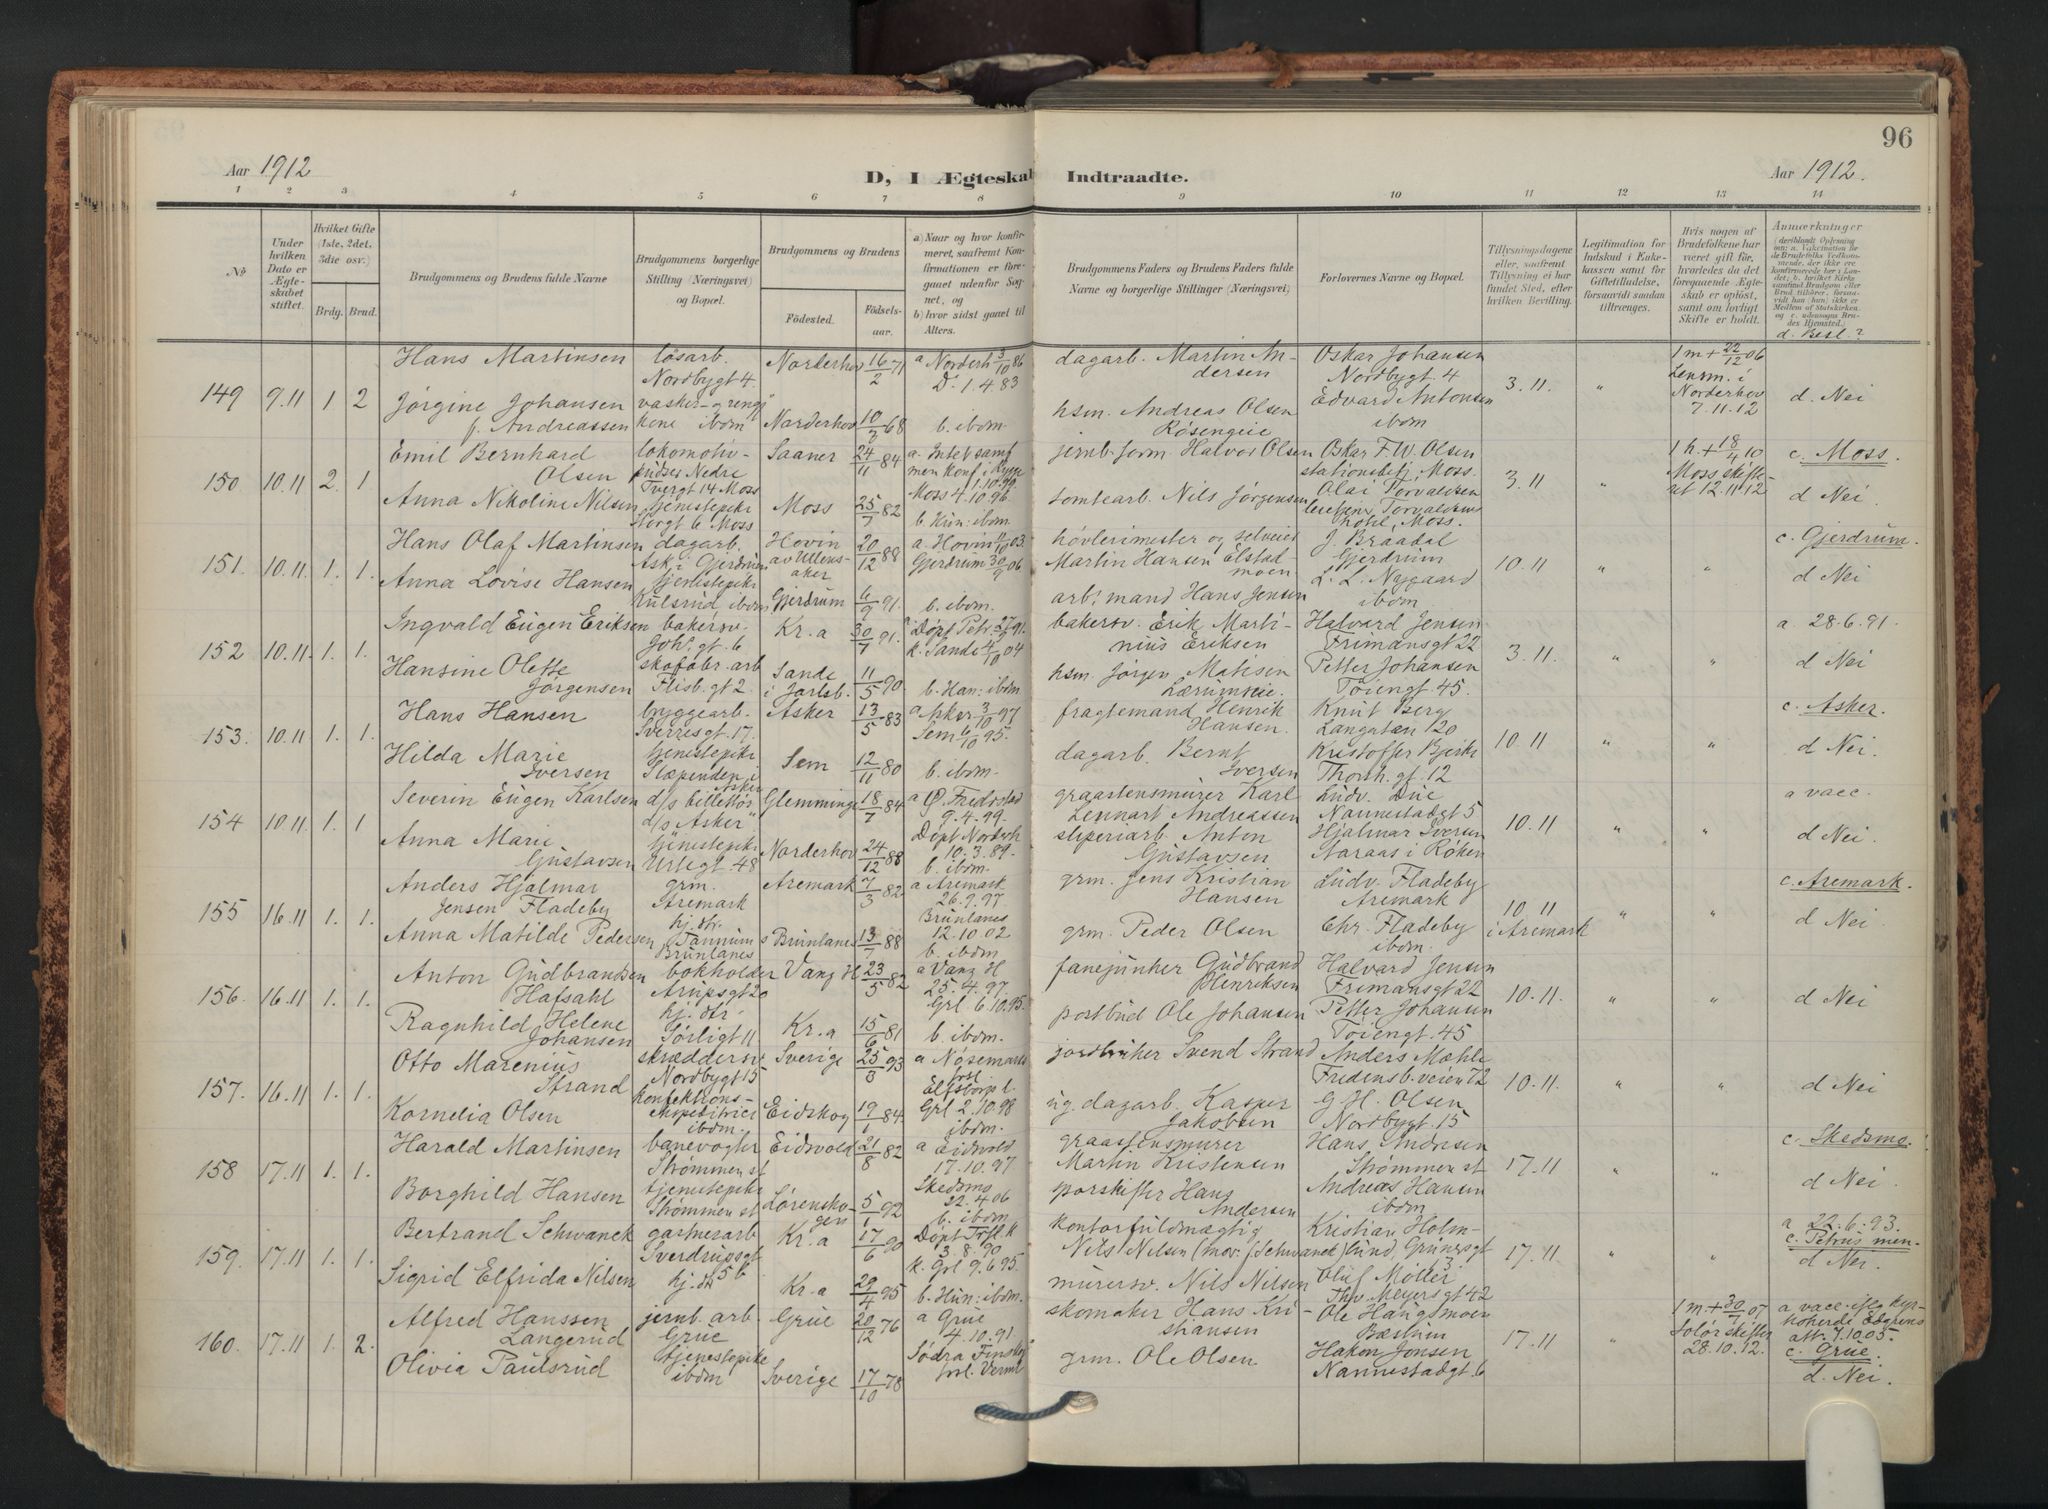 96
Aar 1912
D, I Ægteskab Indtraadte.
Aar 1912.
1 2 3 4 5 6 7 8 9 10 11 12 13 14
No
Under hvilken Dato er Ægteskabet stiftet.
Hvilket Gifte (1ste, 2det, 3die osv.)
Brdg. Brud.
Brudgommens og Brudens fulde Navne
Brudgommens borgerlige Stilling (Næringsvei) og Bopæl.
Brudgommens og Brudens
Fødested.
Fødsels-aar.
a) Naar og hvor konfirmeret, saafremt Konfirmationen er foregaaet udenfor Sognet, og
b) hvor sidst gaaet til Alters.
Brudgommens Faders og Brudens Faders fulde Navne og borgerlige Stillinger (Næringsvei)
Forlovernes Navne og Bopæl.
Tillysningsdagene eller, saafremt Tillysning ei har fundet Sted, efter hvilken Bevilling.
Legitimation for Indskud i Enkekassen samt for Giftetilladelse, forsaavidt saadan tiltrænges.
Hvis nogen af Brudefolkene har været gift før, hvorledes da det foregaaende Ægteskab er opløst, samt om lovligt Skifte er holdt.
Anmærkninger
d. Besl.?
149 9.11 1 2
Hans Martinsen
løsarb. Nordbygt 4.
Norderhov 16/2 71
a Norderh 3/10 86
D. 1.4 83
dagarb. Martin Andersen
Oskar Johansen
Nordbygt. 4
3.11. "
1 m + 22/12 06
Lensm. i Norderhov
7.11.12
d. Nei
Jørgine Johansen
f. Andreassen
vasker- og rengj
kone ibdm
Norderhov 10/ 68
b. ibdm.
hsm. Andreas Olsen
Røsengeie
Edvard Antonsen
ibdm
150 10.11 2. 1.
Emil Bernhard
Olsen
lokomotiv
pudser Nedre
Tvergt 14 Moss
Saaner 24/11 84
Oskar F.W. Olsen
jernb. form. Halvor Olsen
stationsbetj. Moss.
3.11 "
1 h + 18/4 10
Moss skifte
ret 12.11.12
c. Moss.
d Nei
Anna Nikoline Nilsen
tjenestepike
Storgt 6 Moss
Moss 25/7 82
Moss 4.10.96.
b. Hun: ibdm.
tomtearb. Nils Jørgensen
hotel, Moss.
151. 10.11 1. 1.
Hans Olaf Martinsen
dagarb.
Ask i Gjerdrum
Hovin
av Ullensaker
20/12 88
a. Hovin 11/10 03.
Gjerdrum 30/9 06
høvlerimester og selveier
Martin Hansen Elstadmoen
J. Braadal
Gjerdrum
10.11 " "
c. Gjerdrum.
d Nei
Anna Lovise Hansen
tjenestepike
Kulsrud, ibdm
Gjerdrum 6/9 91.
b. ibdm.
arb: mand Hans Jensen
L. L. Nygaard
ibdm
152 10.11. 1. 1.
Ingvald Eugen Eriksen
bakersv.
Joh. gt. 6
Kr.a 30/7 91.
k. Sande 4/10 04
bakersv. Erik Martinius Eriksen
Halvard Jensen
Frimansgt 22
3.11. " "
a. 28.6.91.
d Nei
Hansine Olette
Jørgensen
skofabr. arb
Flisb. gt 2.
Sande
i Jarlsb.
11/5 90
b. Han: ibdm.
hsm. Jørgen Matisen
Lærumseie.
Petter Johansen
Tøiengt. 45.
153. 10.11 1. 1.
Hans Hansen
byggearb.
Sverresgt. 17.
Asker 13/5 83
a Asker 3/10 97
Sem 6/10 95.
fragtemand Henrik
Hansen.
Knut Berg
Langgaten 120
10.11 " "
c. Asker.
d Nei.
Hilda Marie
Iversen
tjenestepike
Slæpenden i
Asker
Sem 12/11 80
b. ibdm.
dagarb. Bernt
Iversen
Kristoffer Bjerke
Thorh. gt. 12
154 10.11 1. 1
Severin Eugen Karlsen
d/s billettør
d/s "Asker"
Glemminge 18/7 84
a Ø. Fredrstad
9.4.99.
graastensmurer Karl
Lennart Andreassen
Ludv. Due
Nannestadgt 5
10.11 " "
a vacc.
d Nei
Anna Marie
Gustavsen
tjenestepike
Urtegt. 48
Norderhov 24/12 88
Døpt Norderh
10.3.89.
b. ibdm.
sliperiarb. Anton
Gustavsen
Hjalmar Iversen
Aaraas i Røken
155 16.11 1. 1.
Anders Hjalmar
Jensen Fladeby
grm.
Aremark
Aremark 7/3 82
a Aremark
26.9.97.
grm. Jens Kristian
Hansen
Ludv. Fladeby
Aremark
10.11
i Aremark
" "
c. Aremark.
d Nei
Anna Matilde Pedersen
hj. dtr.
Tannum
Brunlanes
Brunlanes 13/7 88
Brunlanes
12.10.02
b. ibdm.
grm. Peder Olsen
Chr. Fladeby
ibdm.
156. 16.11 1. 1.
Anton Gudbrandsen
Hafsahl
bokholder
Arupsgt 20
Vang H 23/5 82
a Vang H
25.4.97.
fanejunker Gudbrand
Henriksen
Halvard Jensen
Frimansgt 22
10.11. " "
d Nei
Ragnhild Helene
Johansen
hj. dtr.
Sørligt 11
Kr.a 15/6 81
Grl. 6.10.95.
b. ibdm.
postbud Ole Johansen
Petter Johansen
Tøiengt. 45
157. 16.11 1. 1.
Otto Marenius
Strand
skræddersv
Nordbygt 15
Sverige 25/8 93
jordbruker Svend Strand
Anders Mæhle
Fredensb. veien 72
10.11. " "
d Nei
Kornelia Olsen
konfektions-
ekspeditrice
ibdm.
Eidskog 19/1 84
Grl 2.10.98
ibdm.
ug. dagarb. Kasper
Jakobsen
G H. Olsen
Nordbygt 15
158 17.11 1. 1.
Harald Martinsen
banevogter
Strømmen st
Eidsvold 21/8 82
a Eidsvold
17.10.97
graastensmurer
Martin Kristensen
Hans Andresen
Strømmen st
17.11 " "
c. Skedsmo.
d Nei.
Borghild Hansen
tjenestepike
Strømmen st
Lørenskogen 5/1 92
Skedsmo
22.4.06
b. ibdm
porskifter Hans
Andersen
Andreas Hansen
ibdm
159. 17.11 1. 1.
Bertrand Schwanck
gartnerarb
Sverdrupsgt
5 b
Kr.a 17/6 90
3.8.90
k. Grl 9.6 95.
kontorfuldmægtig
Nils Nilsen (mor. f Schwanck)
Kristian Holm-
lund, Grünersgt
3
17.11 " "
a 22.6.93.
c. Petrus men-
d Nei.
Sigrid Elfrida Nilsen
hj. dtr
Kr.a 29/4 95
b. Hun: ibdm.
murersv. Nils Nilsen
Oluf Møller
Thv. Meyersgt 42
160. 17.11 1. 2.
Alfred Hanssen
Langerud
jernb. arb.
Grue
Grue 20/12 76
a Grue
4.10.91
skomaker Hans Kristiansen
Ole Haugsmoen
Bærum
17.11 "
1 m. + 30/7 07
Solør skifter
28.10.12.
att. 7.10.05.
c. Grue.
d. Nei.
Olivia Paulsrud
tjenestepike
ibdm
Sverige 17/10 78
Södra Finskog
grm. Ole Olsen
Hakon Jonsen
Nannestadgt. 6